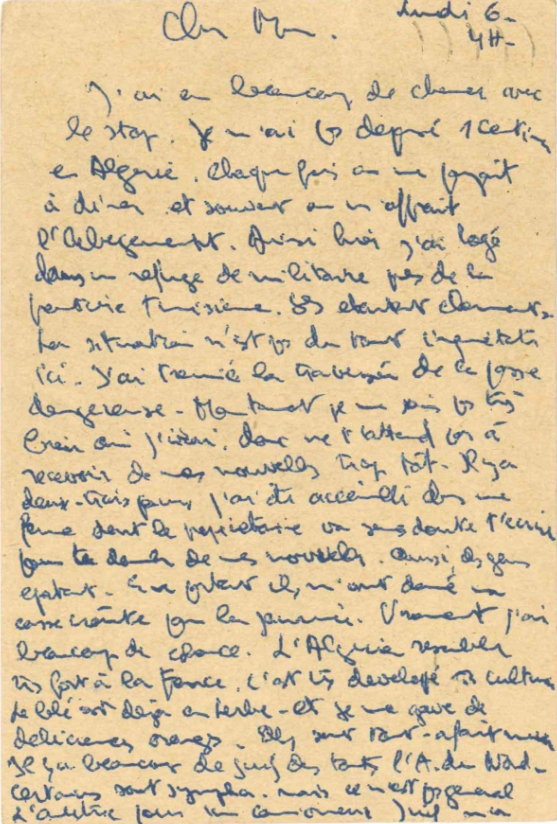 lundi 6.
4H.
J'ai eu beaucoup de chance avec
le stop. Je n'ai ps depensé 1 centime
en Algerie. Chaque fois on me payait
à diner et souvent on m'offrait
l'hebergement. Ainsi hier j'ai logé
dans un refuge de militaire pres de la
tunisienne. Ils etaient
La situation n'est ps du tout
ici. J'ai terminé la traversée de la
dangereuse. Maintenant je ne sais ps très
bien où j'irai. donc ne t'attend ps à
recevoir de mes nouvelles trop tôt. Il y a
deux-trois jours j'ai été accueilli dans une
ferme dont le proprietaire va sans doute t'ecrire
pour te de mes nouvelles. aussi, des gens
epatant. En partant ils m'ont donné un
casse croute pour la journée. Vraiment j'ai
beaucoup de chance. L'Algerie ressemble
très fort à la France. c'est très developpé
Le blé est deja en herbe - et je me gave de
delicieuses oranges. sont tout-a-fait
Il y a beaucoup de juifs ds toute l'A. du Nord.
certains sont sympha. mais ce n'est ps general
L'autre jour un